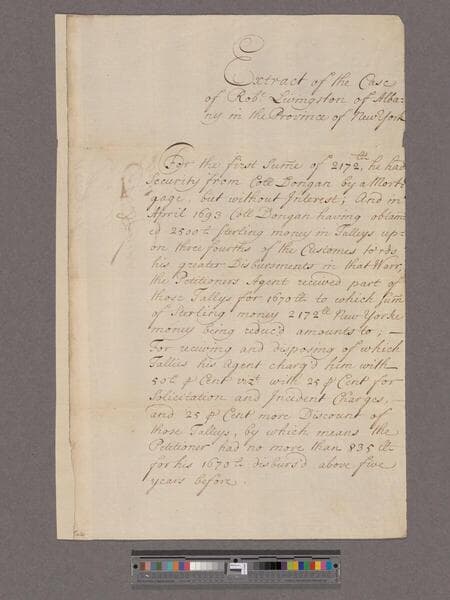 Extract of the Case
of Robt. Livingston of Alba=
ny in the Province of New York
For the first Sume of 2172 lb, he had
Security from Coll Dongan by a Mort=
gage, but without Interest; And in
April 1693 Coll Dongan having obtain=
ed 2500 lb Sterling money in Tallys up=
on three fourths of the Customes towrds
his greater Disbursments in that Warr,
the Petitioners Agent received part of
those Tallys for 1670 lb to which sum
of Sterling money 2172 lb New Yorke
money being reduc'd amounts to; —
For receiving and disposing of which
Tallies his Agent charg'd him with
50 lb ⅌ Cent vizt. with 25 ⅌ Cent for
Solicitation and Incident Charges,
and 25 ⅌ Cent more Discount of
those Talleys, by which means the
Petitioner had no more than 835 lb
for his 1670 lb disburs'd above five
years before.